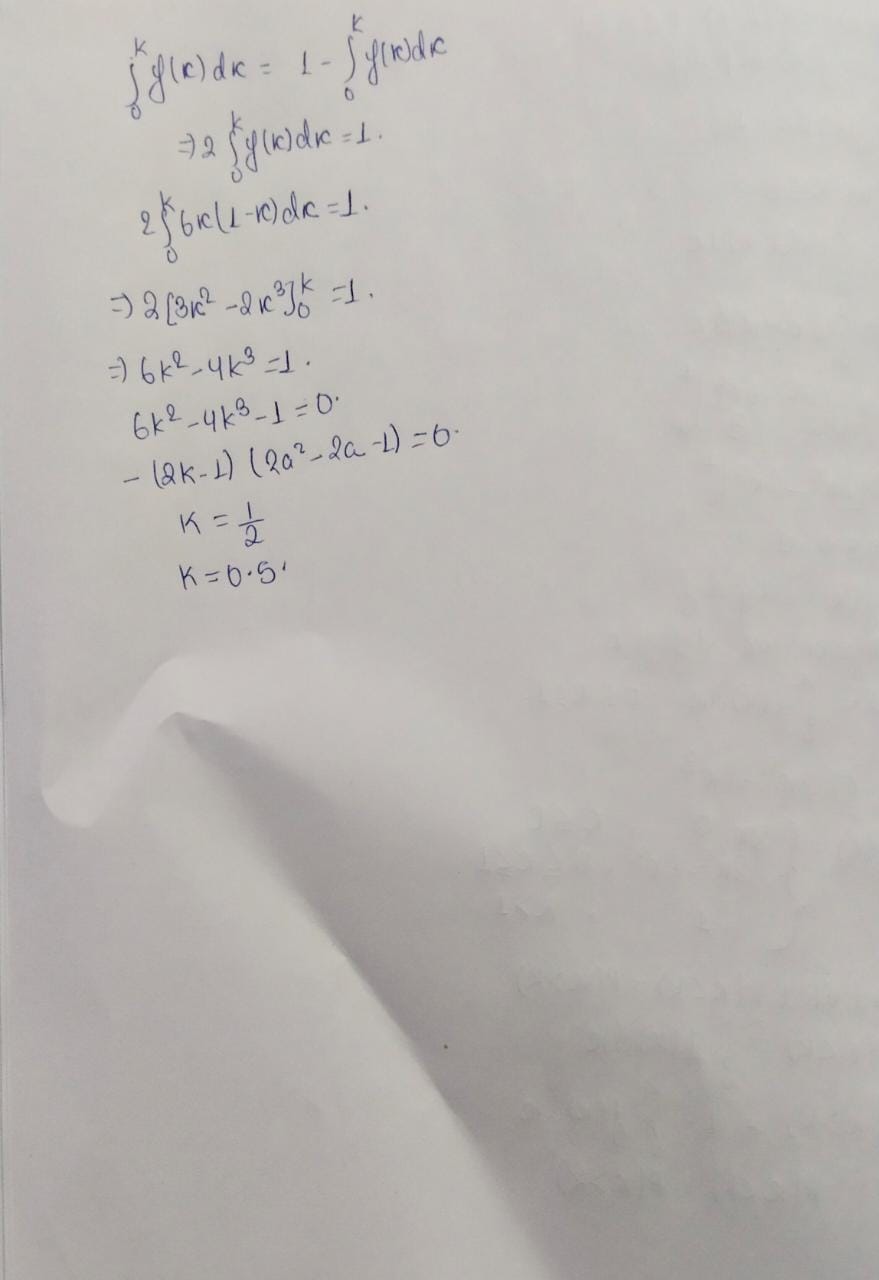 ∫₀ᵏ f(x) dx = 1 - ∫₀ᵏ f(x) dx
⇒ 2 ∫₀ᵏ f(x) dx = 1.
2 ∫₀ᵏ 6x(1-x) dx = 1.
⇒ 2 [3x² - 2x³]₀ᵏ = 1.
⇒ 6k² - 4k³ = 1.
6k² - 4k³ - 1 = 0.
- (2k-1) (2a² - 2a - 1) = 0.
K = 1/2
K = 0.5.